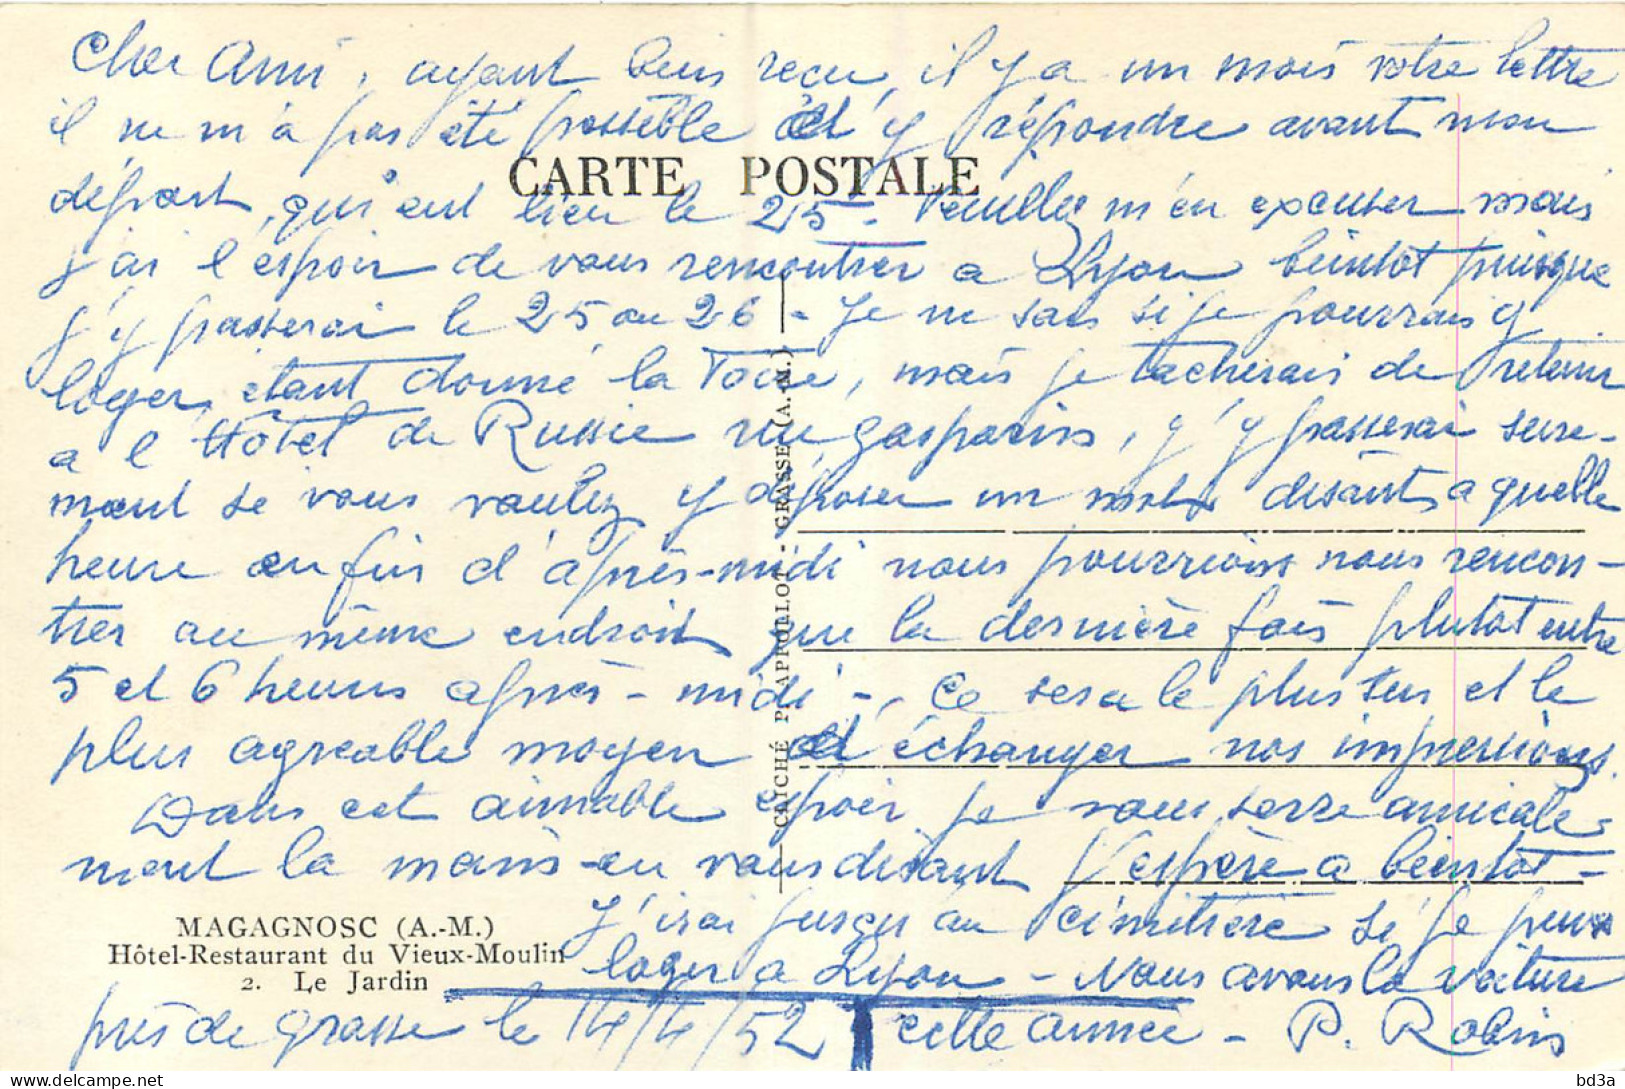 Cher Ami, ayant bien reçu, il y a un mois votre lettre
il ne m'a pas été possible d'y répondre avant mon
CARTE POSTALE
départ, qui eut lieu le 25 - Veuillez m'en excuser mais
j'ai l'espoir de vous rencontrer a Lyon bientot puisque
j'y passerai le 25 ou 26 - Je ne sais si je pourrais y
loger, étant donné la Foire, mais je tacherais de retenir
a l'Hôtel de Russie rue gasparin, j'y passerai sure-
ment se vous voulez y déposer un mot disant a quelle
heure en fin d'après-midi nous pourrions nous rencon-
trer au même endroit que la dernière fois plutot entre
5 et 6 heures après-midi -, Ce sera le plus sur et le
plus agreable moyen d'échanger nos impressions.
Dans cet aimable espoir je vous serre amicale-
ment la main en vous disant j'espère a bientot -
J'irai jusqu'au cimitière si je peux
loger a Lyon - Nous avons la voiture
cette année - P. Robin
près de grasse le 14/4/52
MAGAGNOSC (A.-M.)
Hôtel-Restaurant du Vieux-Moulin
2. Le Jardin
CLICHÉ P. APPOLOT - GRASSE (A.-M.)
delcampe.net
bd3a